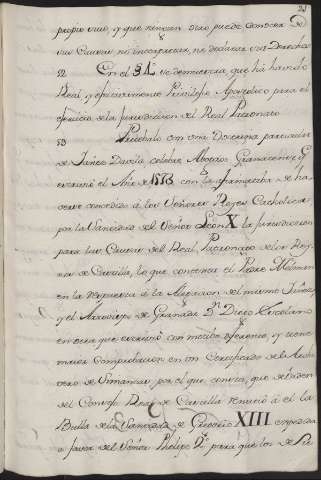 propio uso, y que ningun otro puede conocer de
sus Causas ni interpretar, ni declarar sus Derechos
52 En el § L se demuestra, que há havido
Real, y efectivamente Privilegio Apostolico para el
exercicio de la Jurisdiccion del Real Patronato
53 Pruebalo con una Doctrina particular
de Yañez Davila celebre Abogado Granatense, q
escrivió el Año de 1553 con la afirmativa de ha-
verse concedido á los Señores Reyes Catholicos,
por la Santidad del Señor Leon X la Jurisdiccion
para las Causas del Real Patronato de los Rey-
nos de Castilla, lo que contexta el Padre
en la respuesta á la Alegacion del mismo Yañez,
y el Arzobispo de Granada Dn Diego Escolano
en otra que escrivió con motivo diferente, y tiene
maior comprobacion en un Certificado del Archi-
vero de Simancas, por el que consta, que de orden
del Consejo Real de Castilla remitió á el la
Bulla de la Santidad de Gregorio XIII expedida
a favor del Señor Phelipe 2º para que los de Su